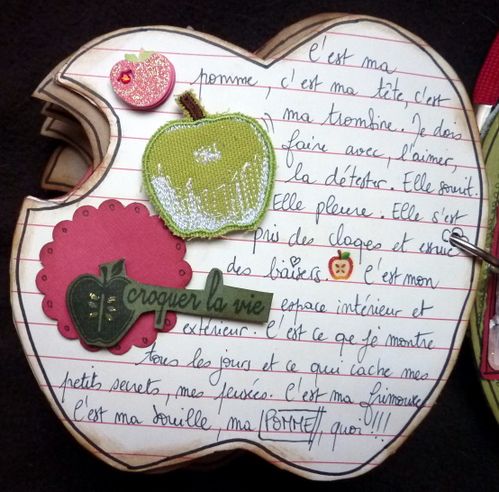 C'est ma
pomme, c'est ma tête, c'est
ma trombine. Je dois
faire avec, l'aimer,
la détester. Elle sourit.
Elle pleure. Elle s'est
pris des claques et essuie
des baisers. C'est mon
croquer la vie
espace intérieur et
extérieur. C'est ce que je montre
tous les jours et ce qui cache mes
petits secrets, mes pensées. C'est ma frimousse
C'est ma bouille, ma POMME, quoi!!!